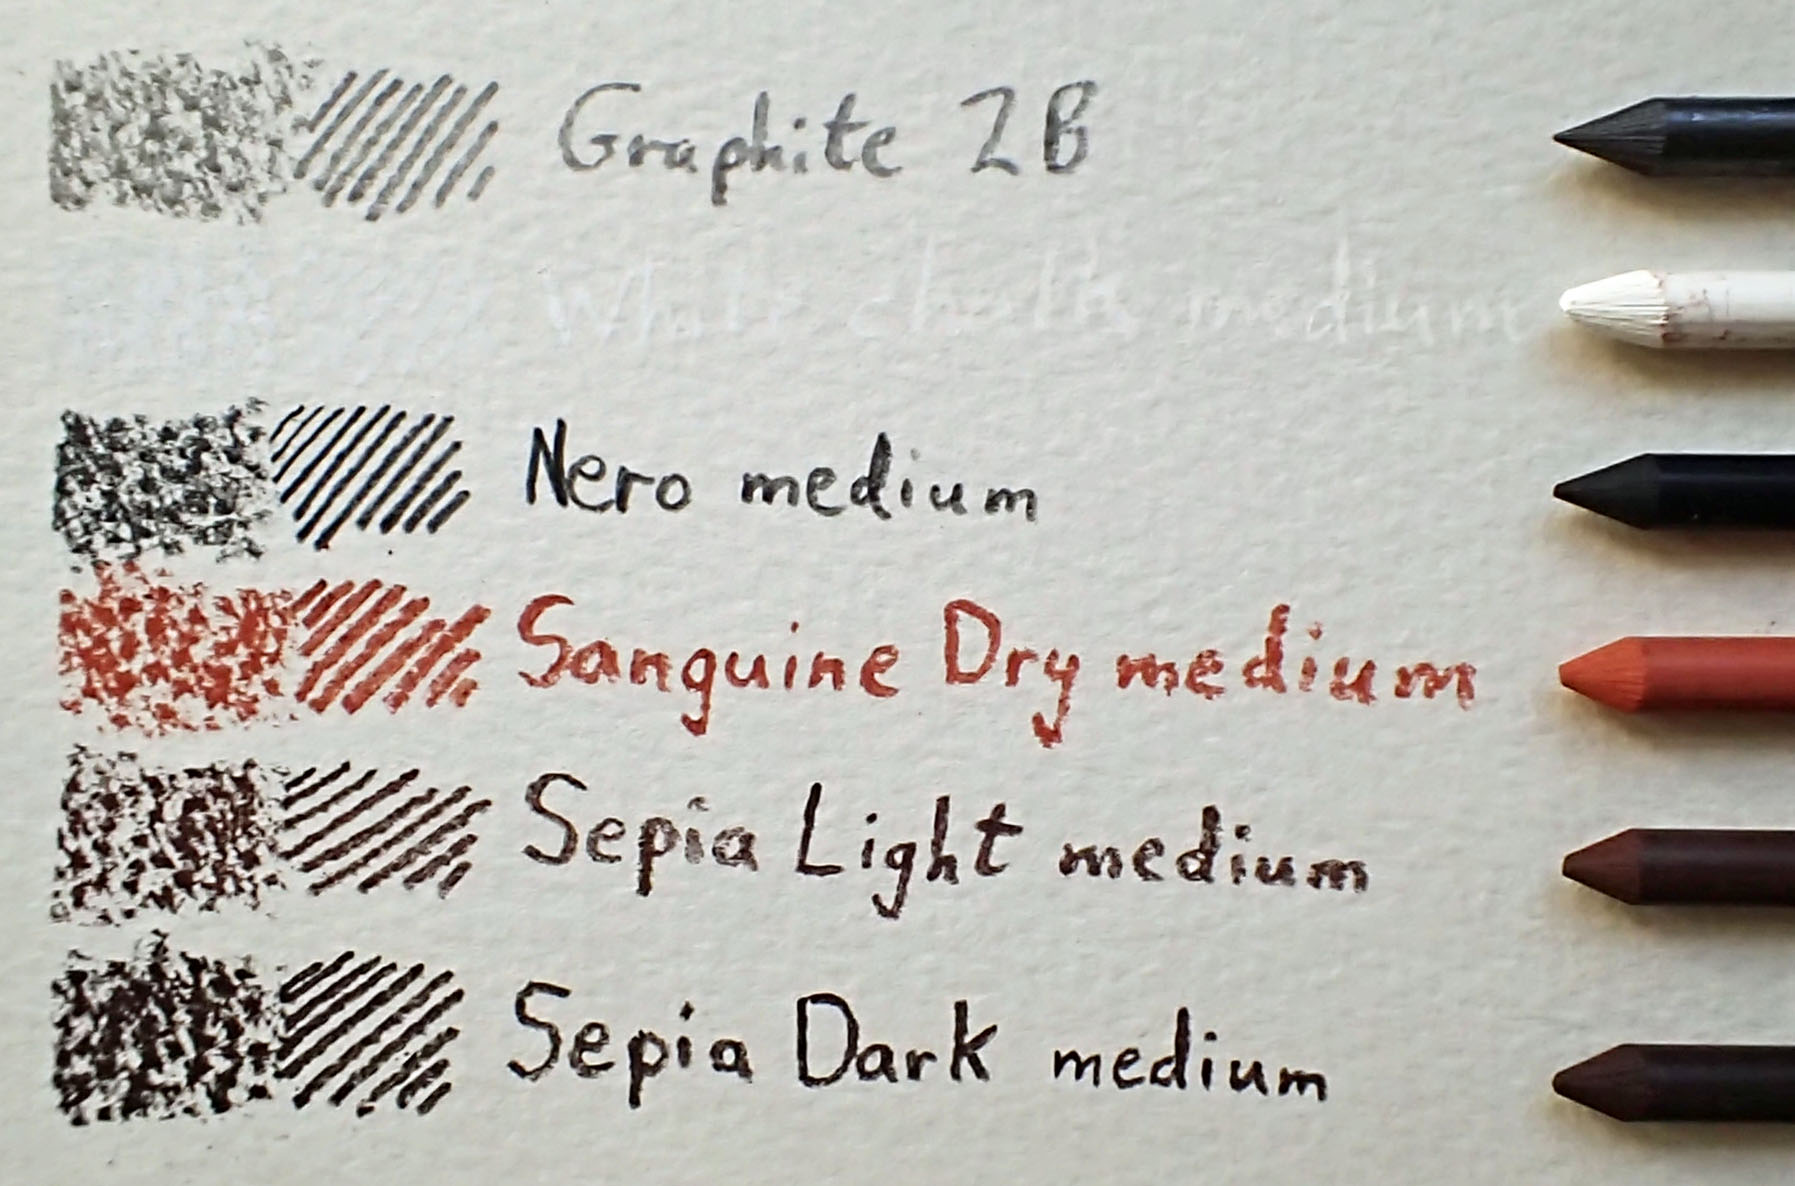 Graphite 2B
White chalk medium
Nero medium
Sanguine Dry medium
Sepia Light medium
Sepia Dark medium